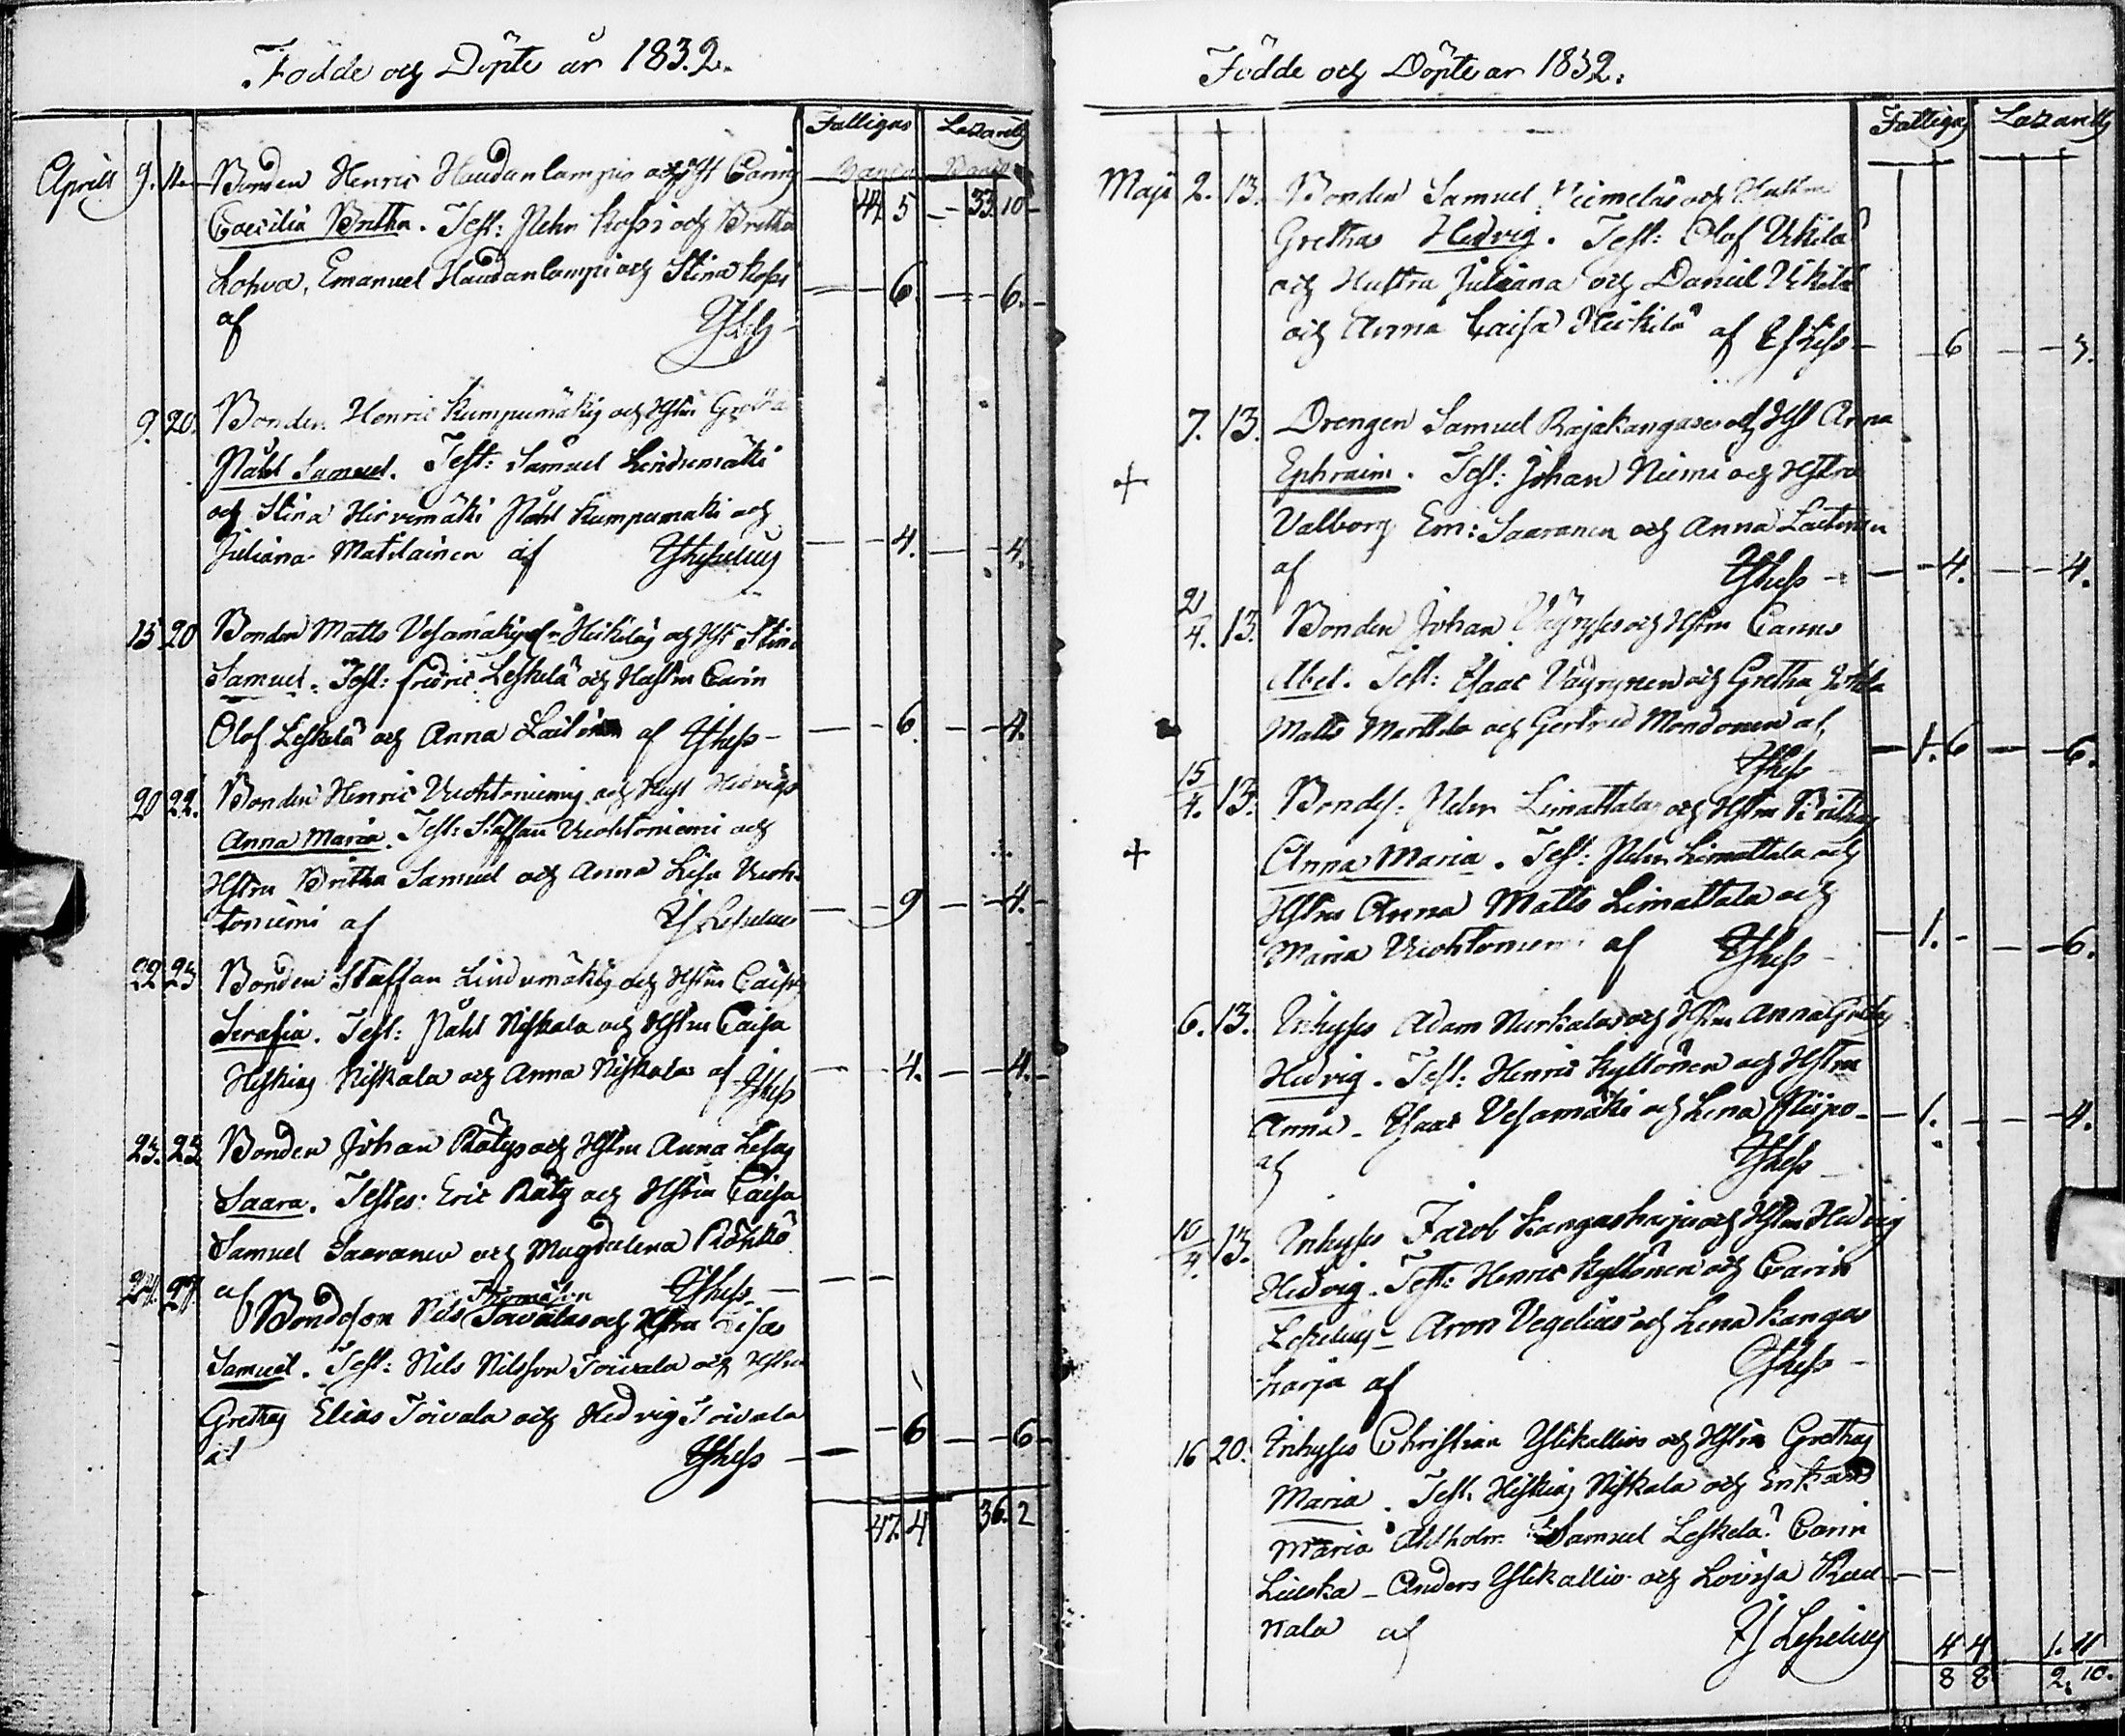 Födde och Döpte år 1832.
Fattigas Lazaretts
Banco Banco
Aprill 9. 11. Bonden Henric Haudanlampis och Hst Carins
44 5 33. 10
Caecilia Britha. Test: Pehr Kossi och Britha
Lohva, Emanuel Haudanlampi och Stina Kossi
6. 6.
af
9. 20. Bonden Henric Kumpumäkis och Hstru Gretha
Påhl Samuel. Test: Samuel Lindumäki
och Stina Hirvimäki Påhl Kumpumäki och
Juliana Matilainen af 4. 4.
15 20 Bonden Matts Vesamäkis och Hst Stina
Samuel. Test: Fredric Leskelä och Hustru Carin
Olof Leskelä och Anna af 6. 4.
20 22. Bonden Henric Vuohtoniemis och Hust Hedvigs
Anna Maria. Test: Staffan Vuohtoniemi och
Hstru Britha Samuel och Anna Lisa Vuoh-
toniemi af 9 4.
22 23 Bonden Staffan Lindumäkis och Hstru Caisas
Serafia. Test: Påhl Niskala och Hstru Caisa
Hiskias Niskala och Anna Niskala af 4. 4.
23. 25. Bonden Johan Rätys och Hstru Anna Lisas
Saara. Testes: Eric Räty och Hstru Caisa
Samuel Saaranen och Magdalena
af
24. 27. Bondeson Nils Thomasson Toivalas och Hstru Lisas
Samuel. Test: Nils Nilsson Toivala och Hstru
Gretha Elias Toivala och Hedvig Toivala
af 6 6
47. 4 36. 2
Födde och Döpte år 1832.
Fattigas Lazaretts
Maji 2. 13. Bonden Samuel och Hustru
Grethas Hedvig. Test: Olof Ukila
och Hustru Juliana och Daniel
och Anna Caisa Heikilä af 6 3.
7. 13. Drengen Samuel Rajakangases och Hst Anna
+ Ephraim. Test: Johan Niemi och Hstru
Valborg Em: Saaranen och Anna Laitinen
af 4. 4.
21/4. 13. Bonden Johan Väyryses och Hstru Carins
Abel. Test: Isaac Väyrynen och Gretha
Matts Marttila och Gertrud Mondonen af 1. 6 6.
15/4. 13. Bondes: Pehr Limattalas och Hstru Brithas
+ Anna Maria. Test: Pehr Limattala och
Hstru Anna Matts Limattala och
Maria Vuohtoniemi af 1. 6.
6. 13. Inhyses Adam Nurkalas och Hstru Anna Grethas
Hedvig. Test: Henric Kyllönen och Hstru
Anna – Isaac Vesamäki och Lena Piipo – 1. 4.
af
10/4. 13. Inhyses Jacob Kangasharjus och Hstru Hedvig
Hedvig. Test: Henric Kyllönen och Carin
Lesselius – Aron Vegelius och Lena Kangas
harja af
16 20. Inhyses Christian Ylikallios och Hstru Grethas
Maria. Test. Hiskias Niskala och Enkan
Maria Ahlholm. Samuel Leskelä. Carin
– Anders Ylikallio och Lovisa
nala af
4 4 1. 11
8 8 2. 10.